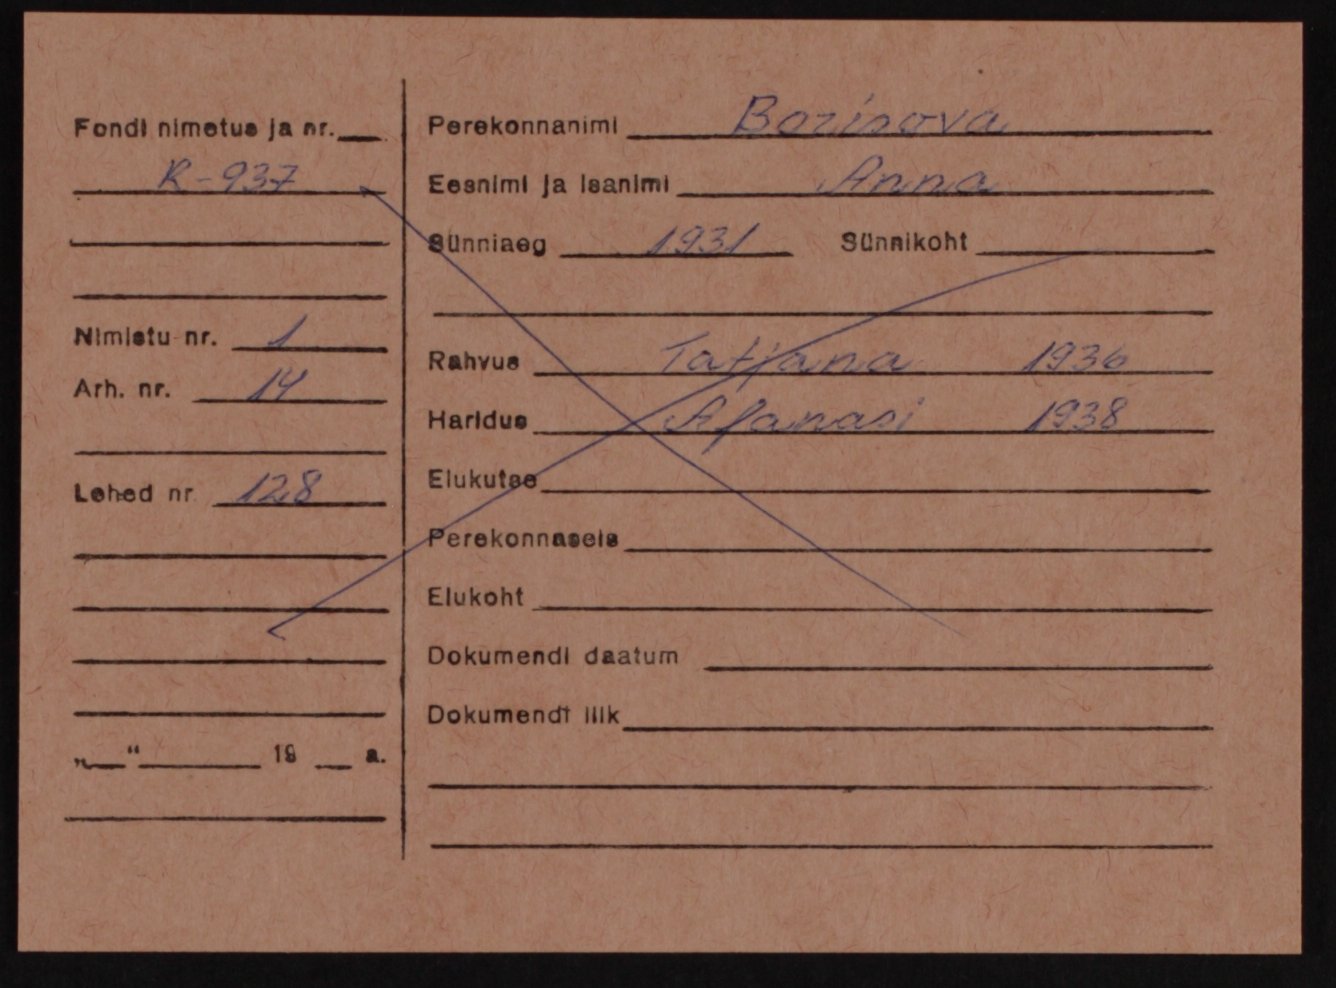 Fondi nimetus ja nr.
R-937
Nimistu nr. 1
Arh. nr. 14
Lehed nr 128
„ “ 19 a.
Perekonnanimi Borisova
Eesnimi ja isanimi Anna
Sünniaeg 1931 Sünnikoht
Rahvus Tatjana 1936
Haridus Afanasi 1938
Elukutse
Perekonnaseis
Elukoht
Dokumendi daatum
Dokumendi liik